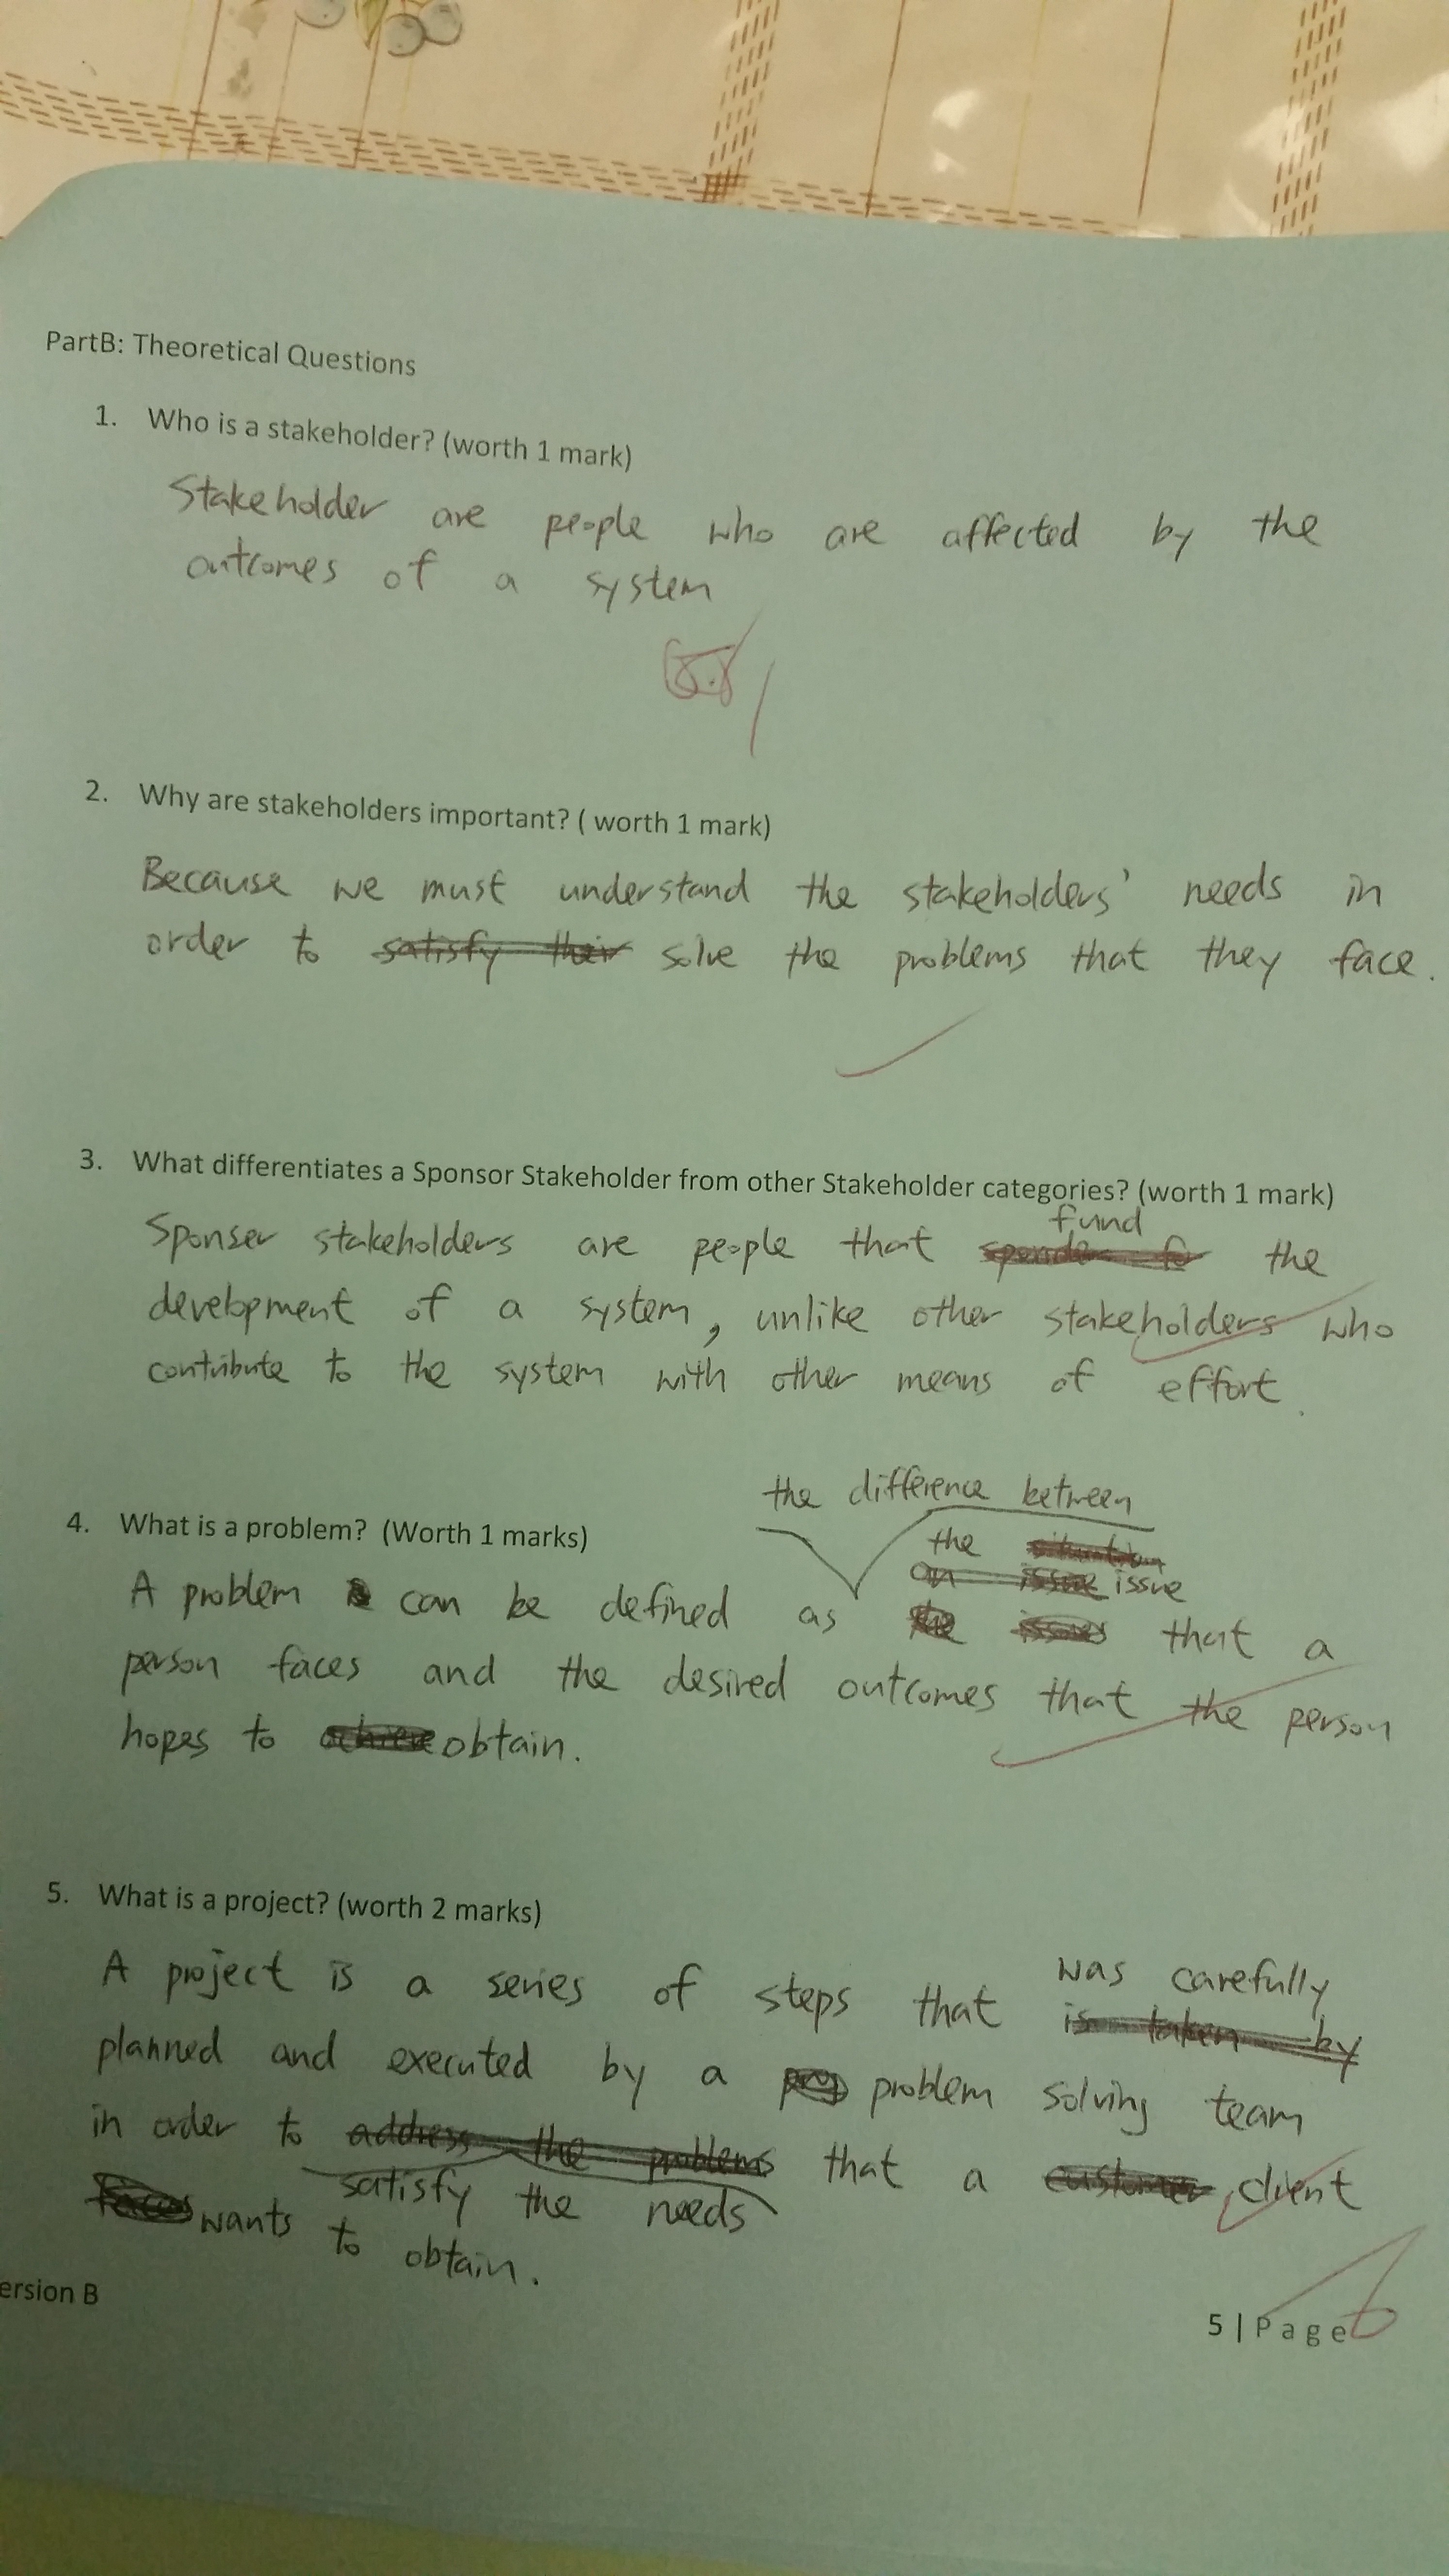 PartB: Theoretical Questions
1. Who is a stakeholder? (worth 1 mark)
Stakeholder are people who are affected by the
outcomes of a system
2. Why are stakeholders important? ( worth 1 mark)
Because we must understand the stakeholders' needs in
order to satisfy their solve the problems that they face.
3. What differentiates a Sponsor Stakeholder from other Stakeholder categories? (worth 1 mark)
fund
Sponser stakeholders are people that the
development of a system, unlike other stakeholders who
contribute to the system with other means of effort.
the difference between
4. What is a problem? (Worth 1 marks)
the
an issue issue
A problem can be defined as the that a
person faces and the desired outcomes that the person
hopes to achieve obtain.
5. What is a project? (worth 2 marks)
was carefully
A project is a series of steps that is taken by
planned and executed by a problem solving team
in order to address the problems that a customer client
satisfy the needs
wants to obtain.
ersion B
5 | Page